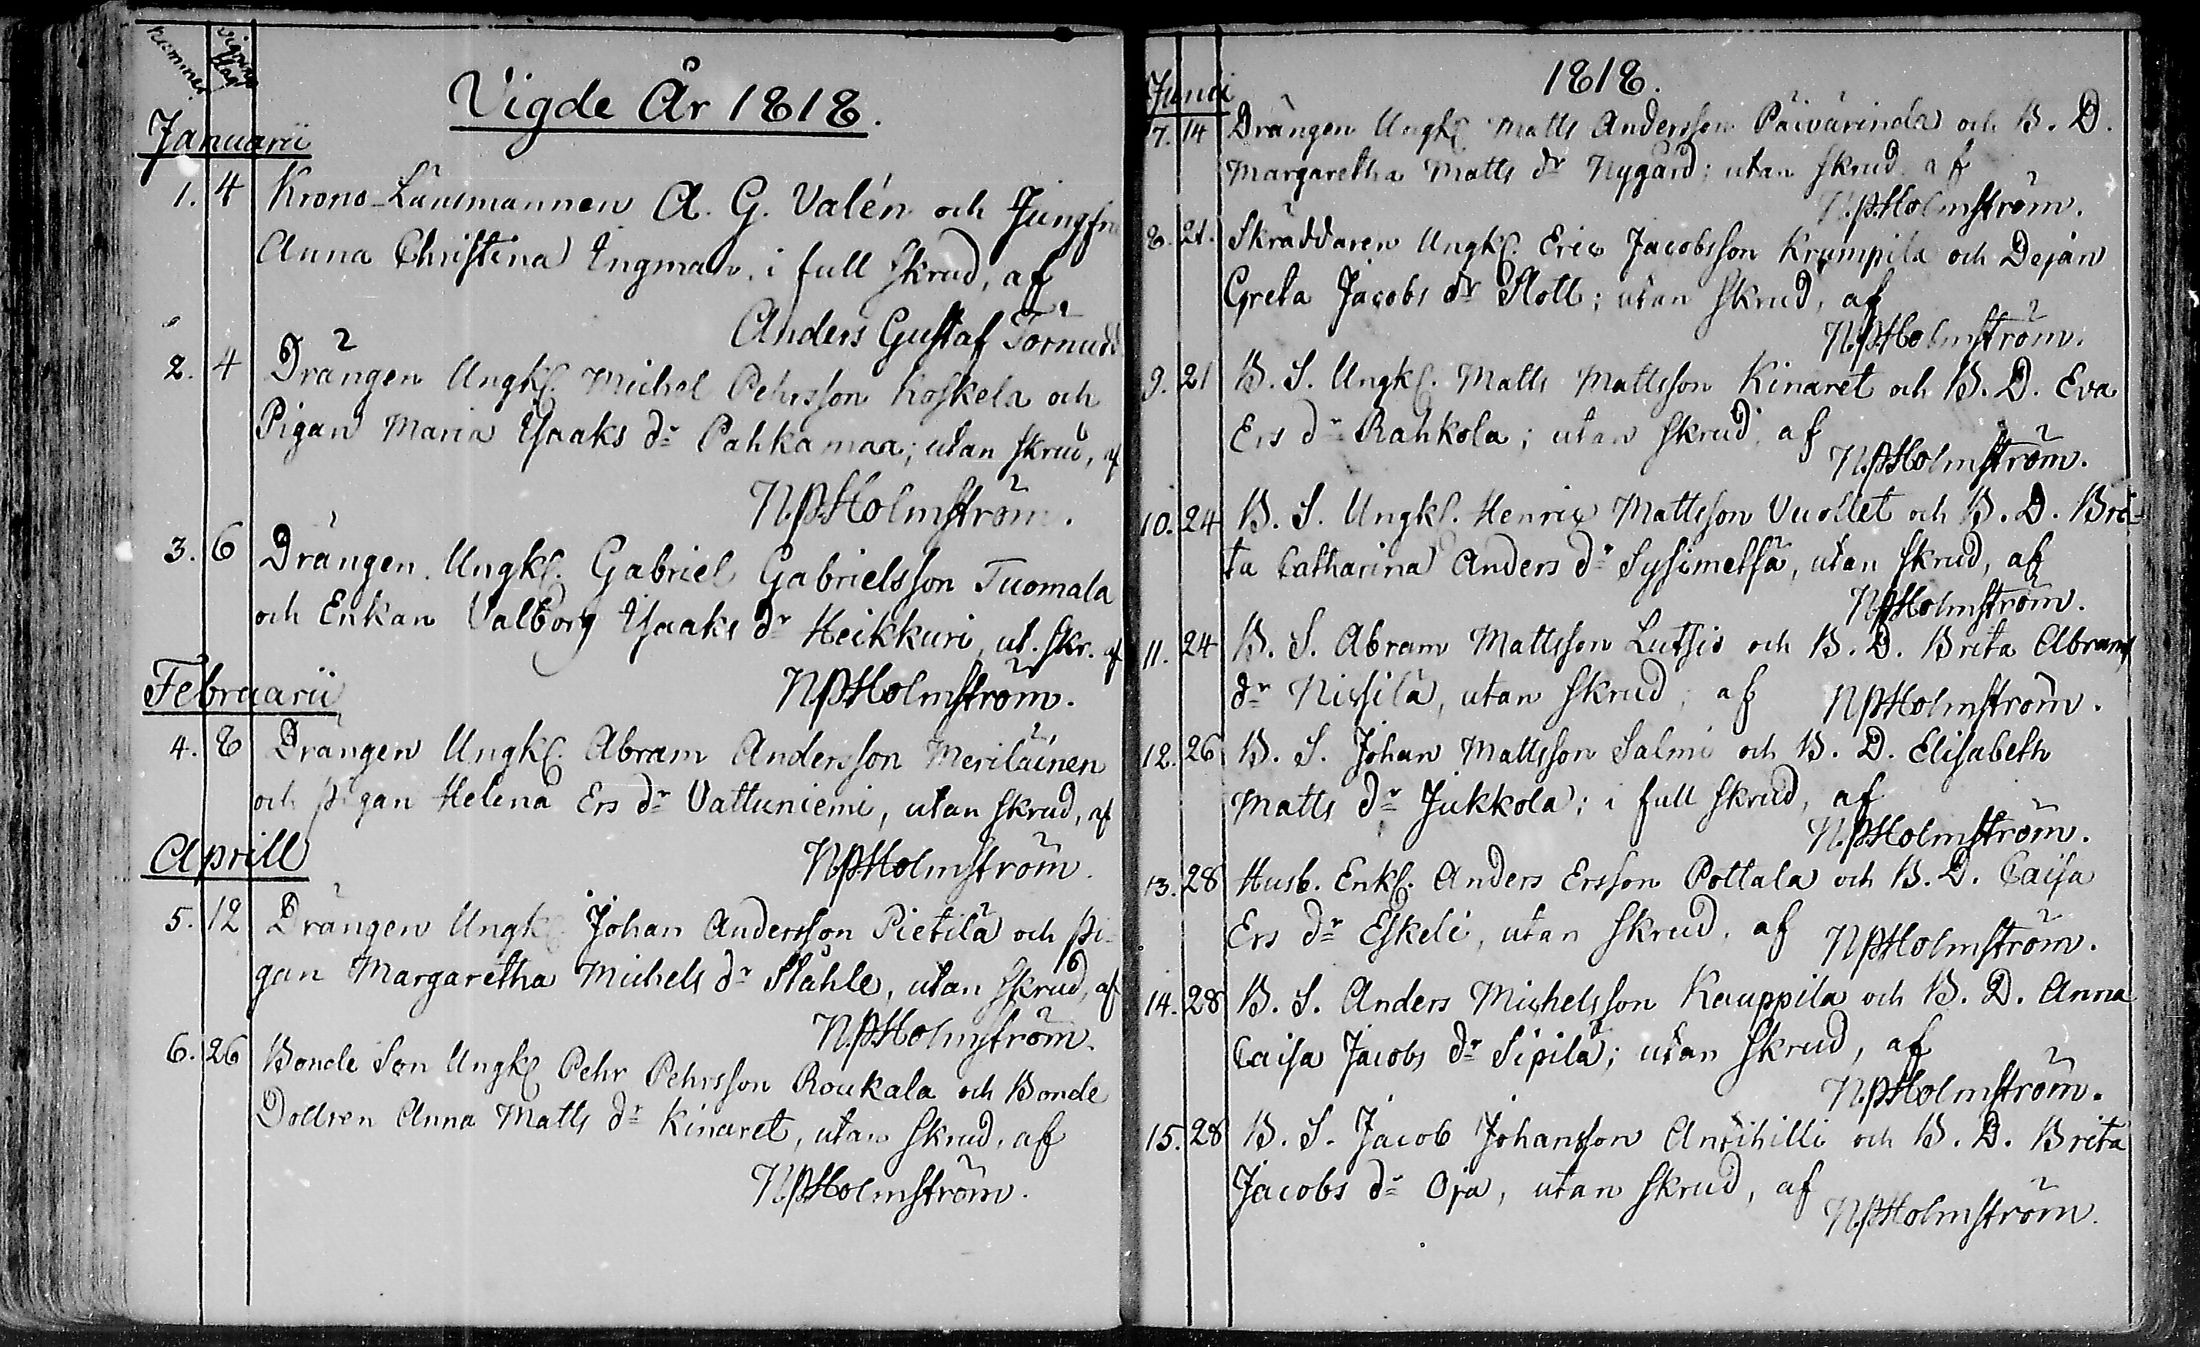 Nummer
vignings dag
Vigde År 1818.
Januarii
1. 4 Krono-Länsmannen A. G. Valén och Jungfru
Anna Christina Ingman, i full skrud, af
Anders Gustaf Törnudd
2. 4 Drängen Ungk. Michel Pehrsson Koskela och
Pigan Maria Isaaks dr Pahkamaa; utan skrud, af
N.P.Holmström.
3. 6 Drängen Ungk. Gabriel Gabrielsson Tuomala
och Enkan Valborg Isaaks dr Heikkuri, ut. skr. af
N.P.Holmström.
Februarii
4. 8 Drängen Ungk. Abram Andersson Meriläinen
och pigan Helena Ers dr Vattuniemi, utan skrud, af
N.P.Holmström.
Aprill
5. 12 Drängen Ungk. Johan Andersson Pietilä och pi-
gan Margaretha Michels dr Ståhle, utan skrud, af
N.P.Holmström.
6. 26 Bonde Son Ungk. Pehr Pehrsson Roukala och Bonde
Dottren Anna Matts dr Kinaret, utan skrud, af
N.P.Holmström.
1818.
Junii
7. 14 Drängen Ungk. Matts Andersson Päivärinda och B. D.
Margaretha Matts dr Nygård; utan skrud af
N.P.Holmström.
8. 21. Skräddaren Ungk. Eric Jacobsson Krumpila och Dejan
Greta Jacobs dr Slott; utan skrud, af
N.P.Holmström.
9. 21 B. S. Ungk. Matts Mattsson Kinaret och B. D. Eva
Ers dr Rahkola; utan skrud, af
N.P.Holmström.
10. 24 B. S. Ungk. Henric Mattsson Vuollet och B. D. Bri-
ta Catharina Anders dr Sysimetsä, utan skrud, af
N.P.Holmström.
11. 24 B. S. Abram Mattsson Lutsis och B. D. Brita Abrams
dr Nissilä, utan skrud, af N.P.Holmström.
12. 26 B. S. Johan Mattsson Salmi och B. D. Elisabeth
Matts dr Jukkola; i full skrud, af
N.P.Holmström.
13. 28 Husb. Enkl. Anders Ersson Pottala och B. D. Caisa
Ers dr Eskeli, utan skrud, af N.P.Holmström.
14. 28 B. S. Anders Michelsson Kauppila och B. D. Anna
Caisa Jacobs dr Sipilä; utan skrud, af
N.P.Holmström.
15. 28 B. S. Jacob Johansson Anttihilli och B. D. Brita
Jacobs dr Oja, utan skrud, af
N.P.Holmström.